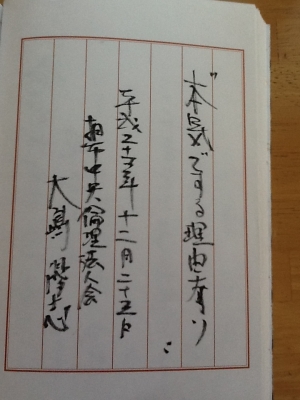 "本気でする理由有り"
平成二十年 十二月二十五日
中央倫理法人会
大嶋